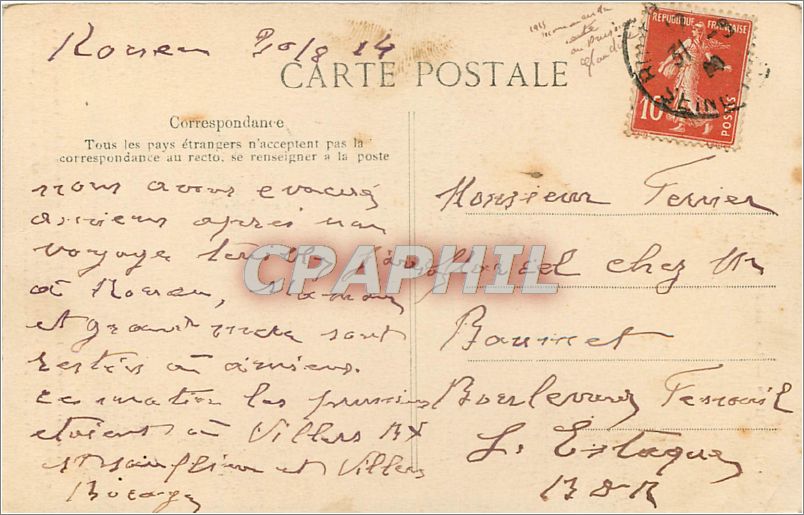 Rouen 30/8 14
1914
CARTE POSTALE
REPUBLIQUE FRANÇAISE
10
POSTES
SEINE
Correspondance
Tous les pays étrangers n'acceptent pas la
correspondance au recto. se renseigner a la poste
nous avons evacué
amiens après un
voyage terrible
a Rouen, Maman
et grand mere sont
restés a amiens.
ce matin les prussiens
etaient a Villers BX
et Villers
Bocage
CPAPHIL
Monsieur Ferrier
chez Mr
Baumet
Boulevard Fenouil
L'Estaque
B D R